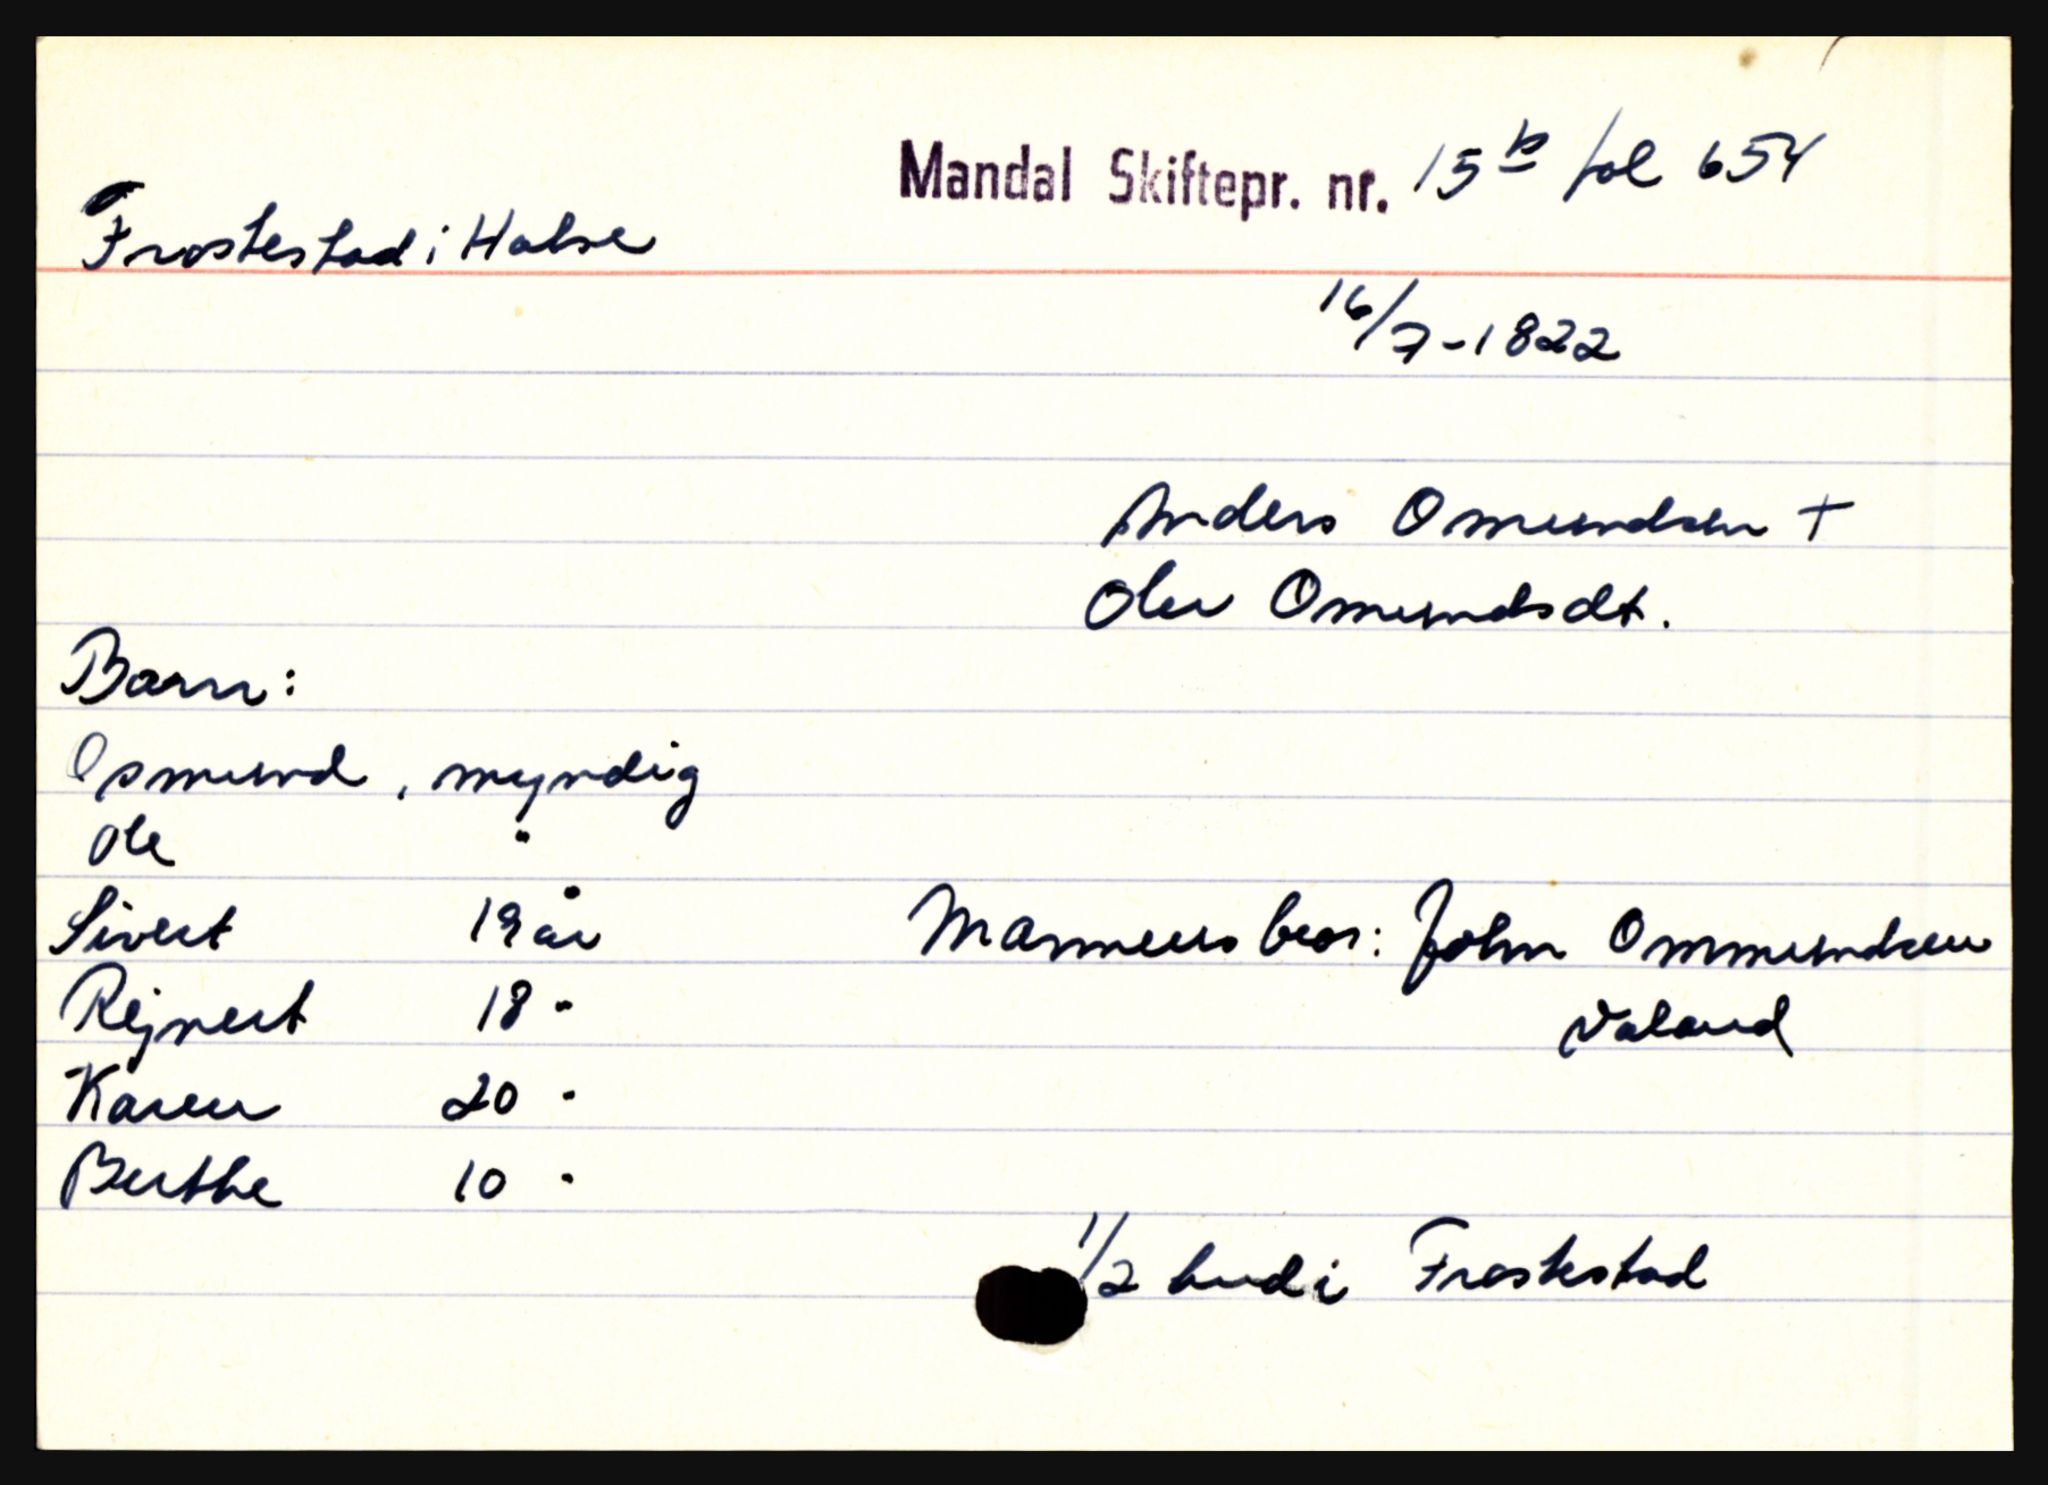 Mandal Skiftepr. nr. 15 b fol 654
Frostestad i Halse
16/7-1822
Anders Omundsen +
Olev Omundsdt.
Barn:
Osmund, myndig
Ole "
Sivert 19 år
Mannens bror: John Ommundsen
Rejnert 18 "
Valand
Karen 20 "
Berthe 10 "
1/2 hud i Frostestad